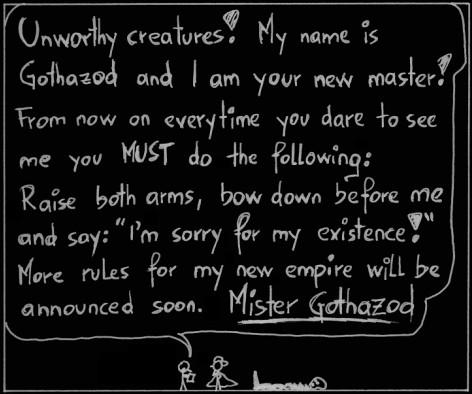 Unworthy creatures! My name is
Gothazod and I am your new master!
From now on everytime you dare to see
me you MUST do the following:
Raise both arms, bow down before me
and say: "I'm sorry for my existence!"
More rules for my new empire will be
announced soon. Mister Gothazod